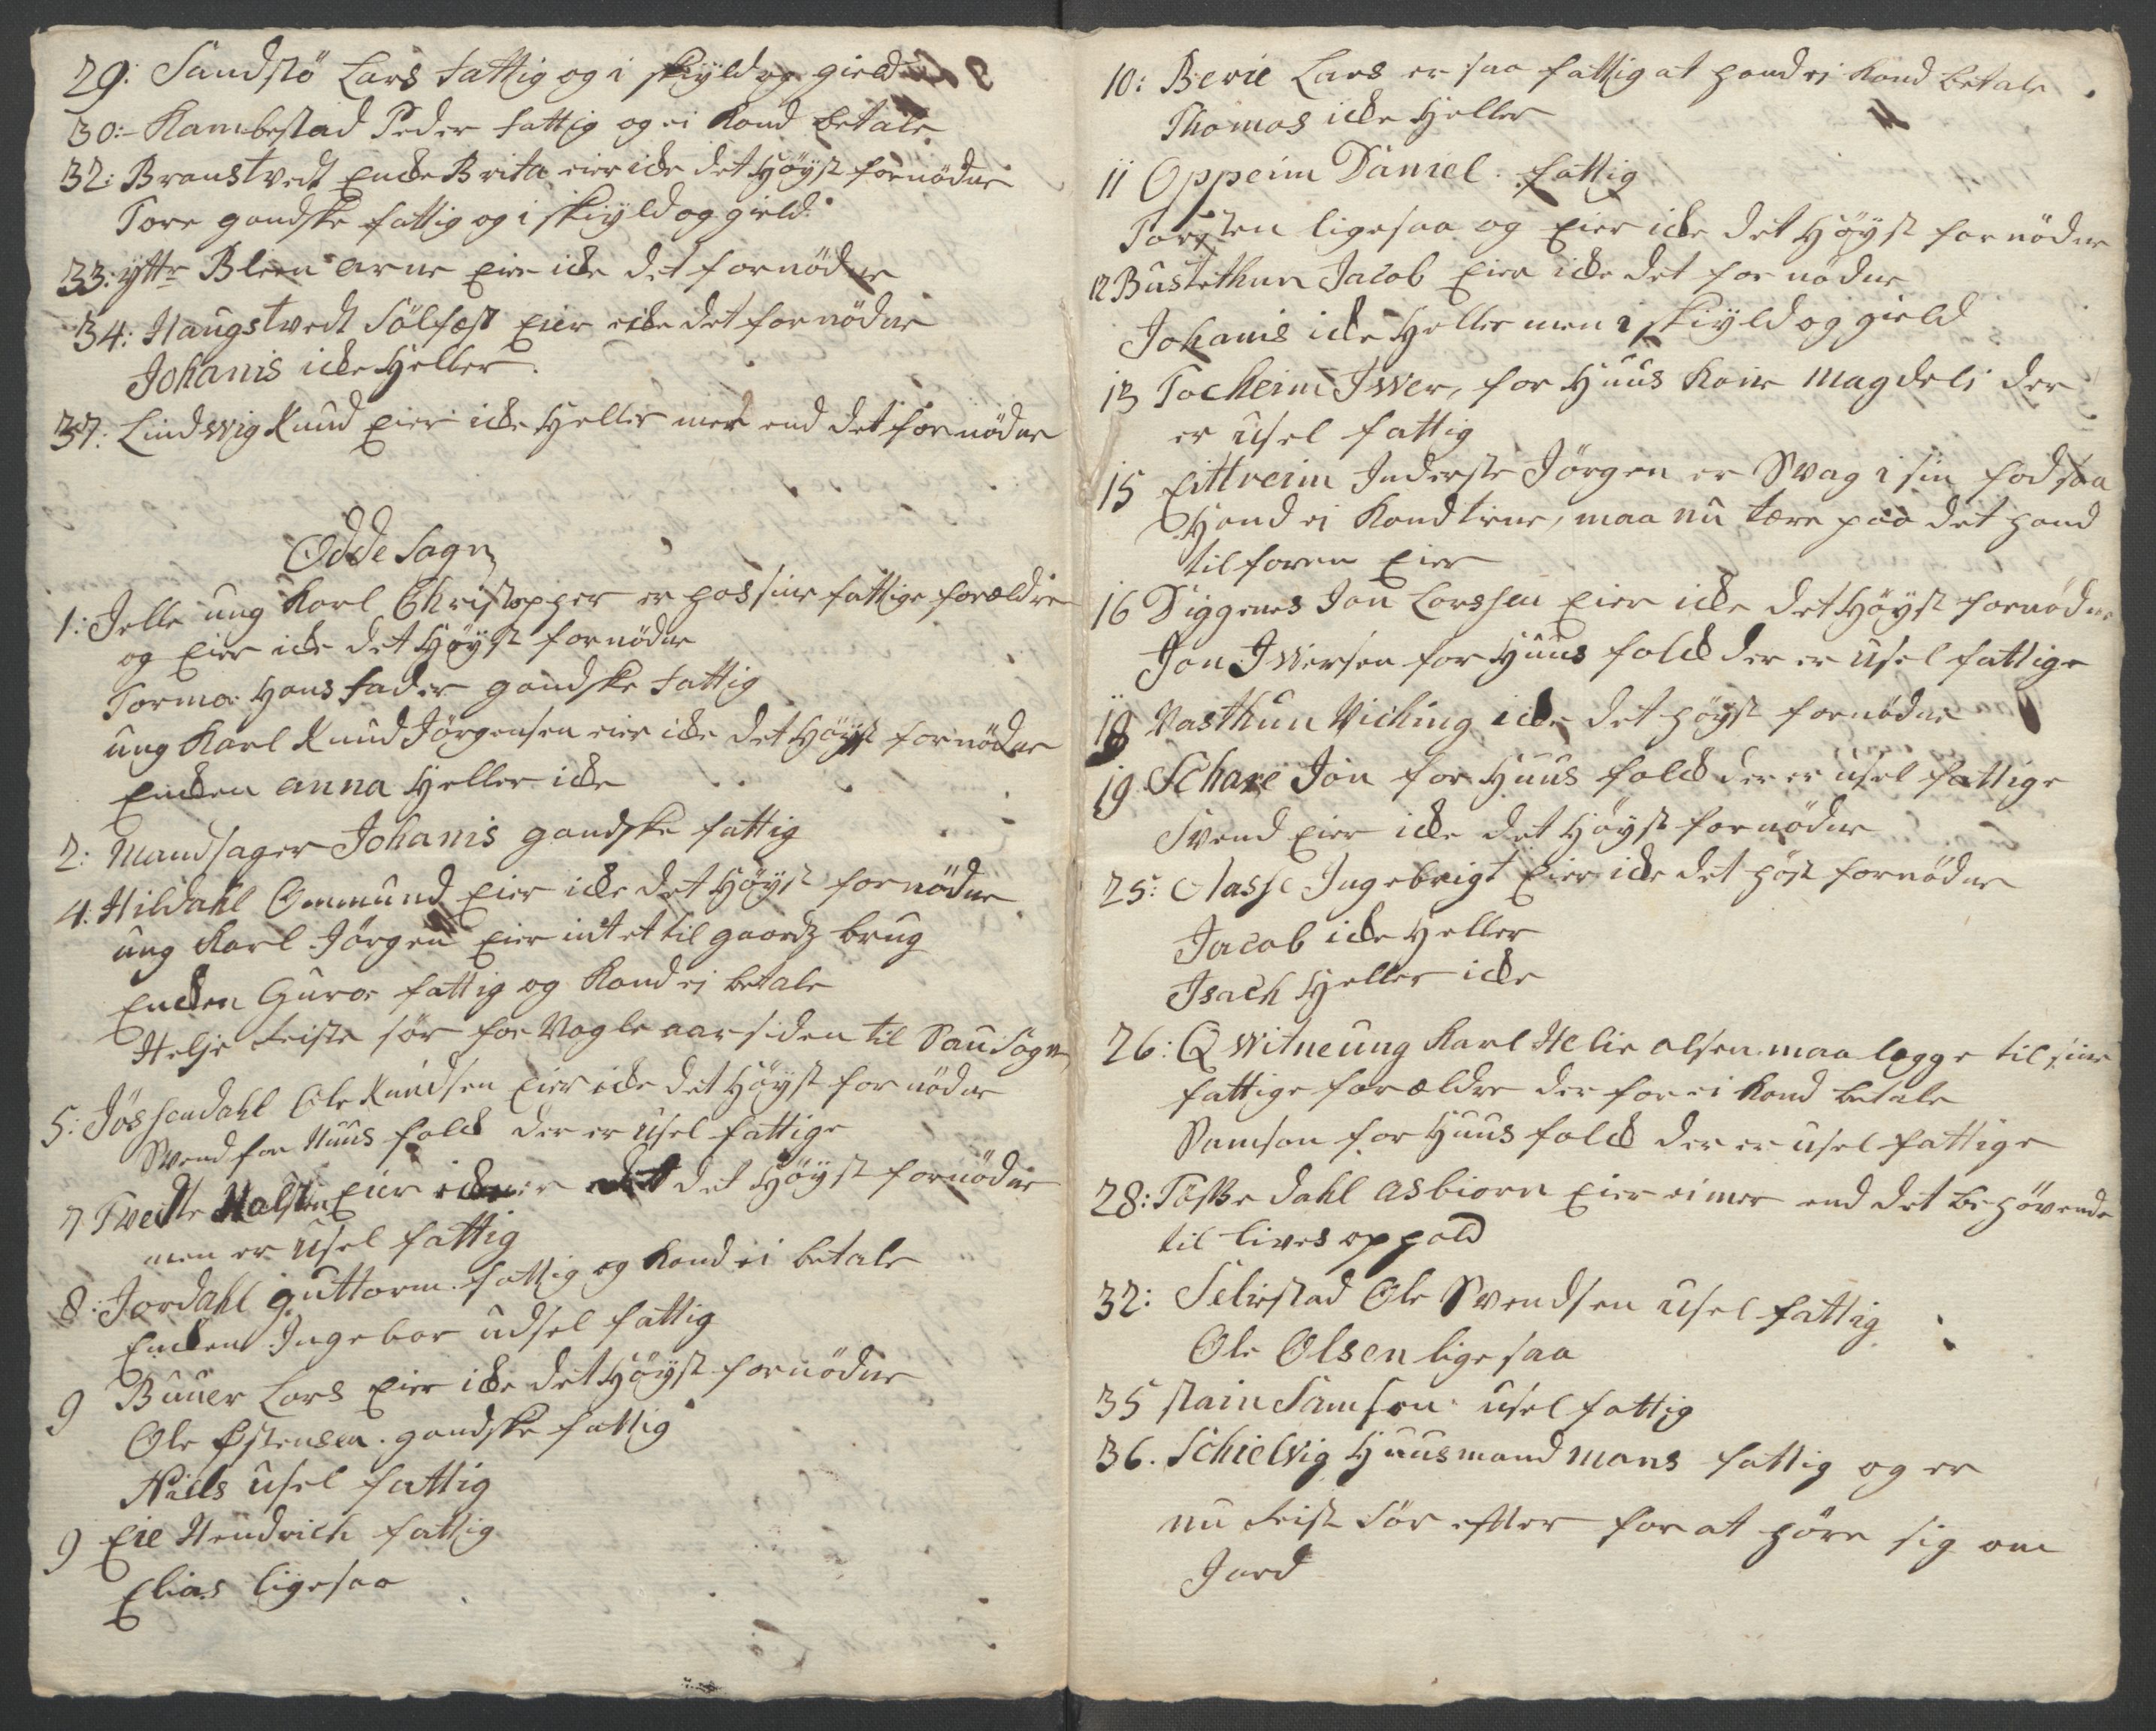 29: Sandstö Lars fattig og i skiyld og gield
30: Kambestad Peder fattig og ei kand betale
32: Branstvedt Encke Brita eier icke det Höyst fornödne
Tore gandske fattig og i skiyld og gield
33: ytte Bleen arne Eier icke det fornödne
34: Haugstvedt Sölfæst Eier icke det fornödne
Johanis icke Heller
37: Lindvig Knud Eier icke Heller mer end det fornödne
Odde Sogn
1: Jelle ung Karl Christopher er hos sine fattige forældre
og Eier icke det Höyst fornödne
Tormo Hans fader gandske fattig
ung Karl Knud Jörgensen eier icke det Höyst fornödne
Encken anna Heller icke
2: Mandsager Johanis gandske fattig
4: Hildahl Ommund Eier icke det Höyst fornödne
ung Karl Jörgen Eier intet til gaardz brug
Encken Guro fattig og Kand ei betale
Helje Reiste sör for Nogle aar siden til Sausogn
5: Jössendahl Ole Knudsen Eier icke det Höyst fornödne
Svend for Huus folck der er usel fattige
7 Tveitte Halsten Eier icke det Höyst fornödne
men er usel fattig
8: Jordahl guttorm fattig og Kand ei betale
Encken Ingebor udsel fattig
9 Buuer Lars Eier icke det Höyst fornödne
Ole Østensen gandske fattig
Niels usel fattig
9 Eie Hendrich fattig
Elias ligesaa
10: Berie Lars er saa fattig at hand ei Kand betale
Thomas icke Heller
11 Oppeim Daniel fattig
Torsten ligesaa og Eier icke det Höyst fornödne
12 Bustethun Jacob Eier icke det fornödne
Johanis icke Heller men i skiyld og gield
13 Tocheim Iver, for Huus Kone Magdeli der
er usel fattig
15 Eittreim Inderste Jörgen er Svag i sin fod saa
Hand ei Kand tiene, maa nu tære paa det hand
tilforen Eier
16 Diggenes Jon Larssen Eier icke det Höyst fornödne
Jon Iversen for Huus folck der er usel fattige
18 Vasthun Viching icke det höyst fornödne
19 Schare Jon for Huus folck der er usel fattige
Svend Eier icke det Höyst fornödne
25: Aasse Ingebrigt Eier icke det höst fornödne
Jacob icke Heller
Isach Heller icke
26: Qvitne ung Karl Helie olsen maa legge til sine
fattige forældre der for ei Kand betale
Samson for Huus folck der er usel fattige
28: Föske dahl asbiorn Eier ei mer end det behövende
til lives ophold
32: Seliestad Ole Svendsen usel fattig
Ole Olsen ligesaa
35 stain Samson usel fattig
36. Schielvig Huusmand Mons fattig og er
nu Reist Sör efter for at höre sig om
Jord